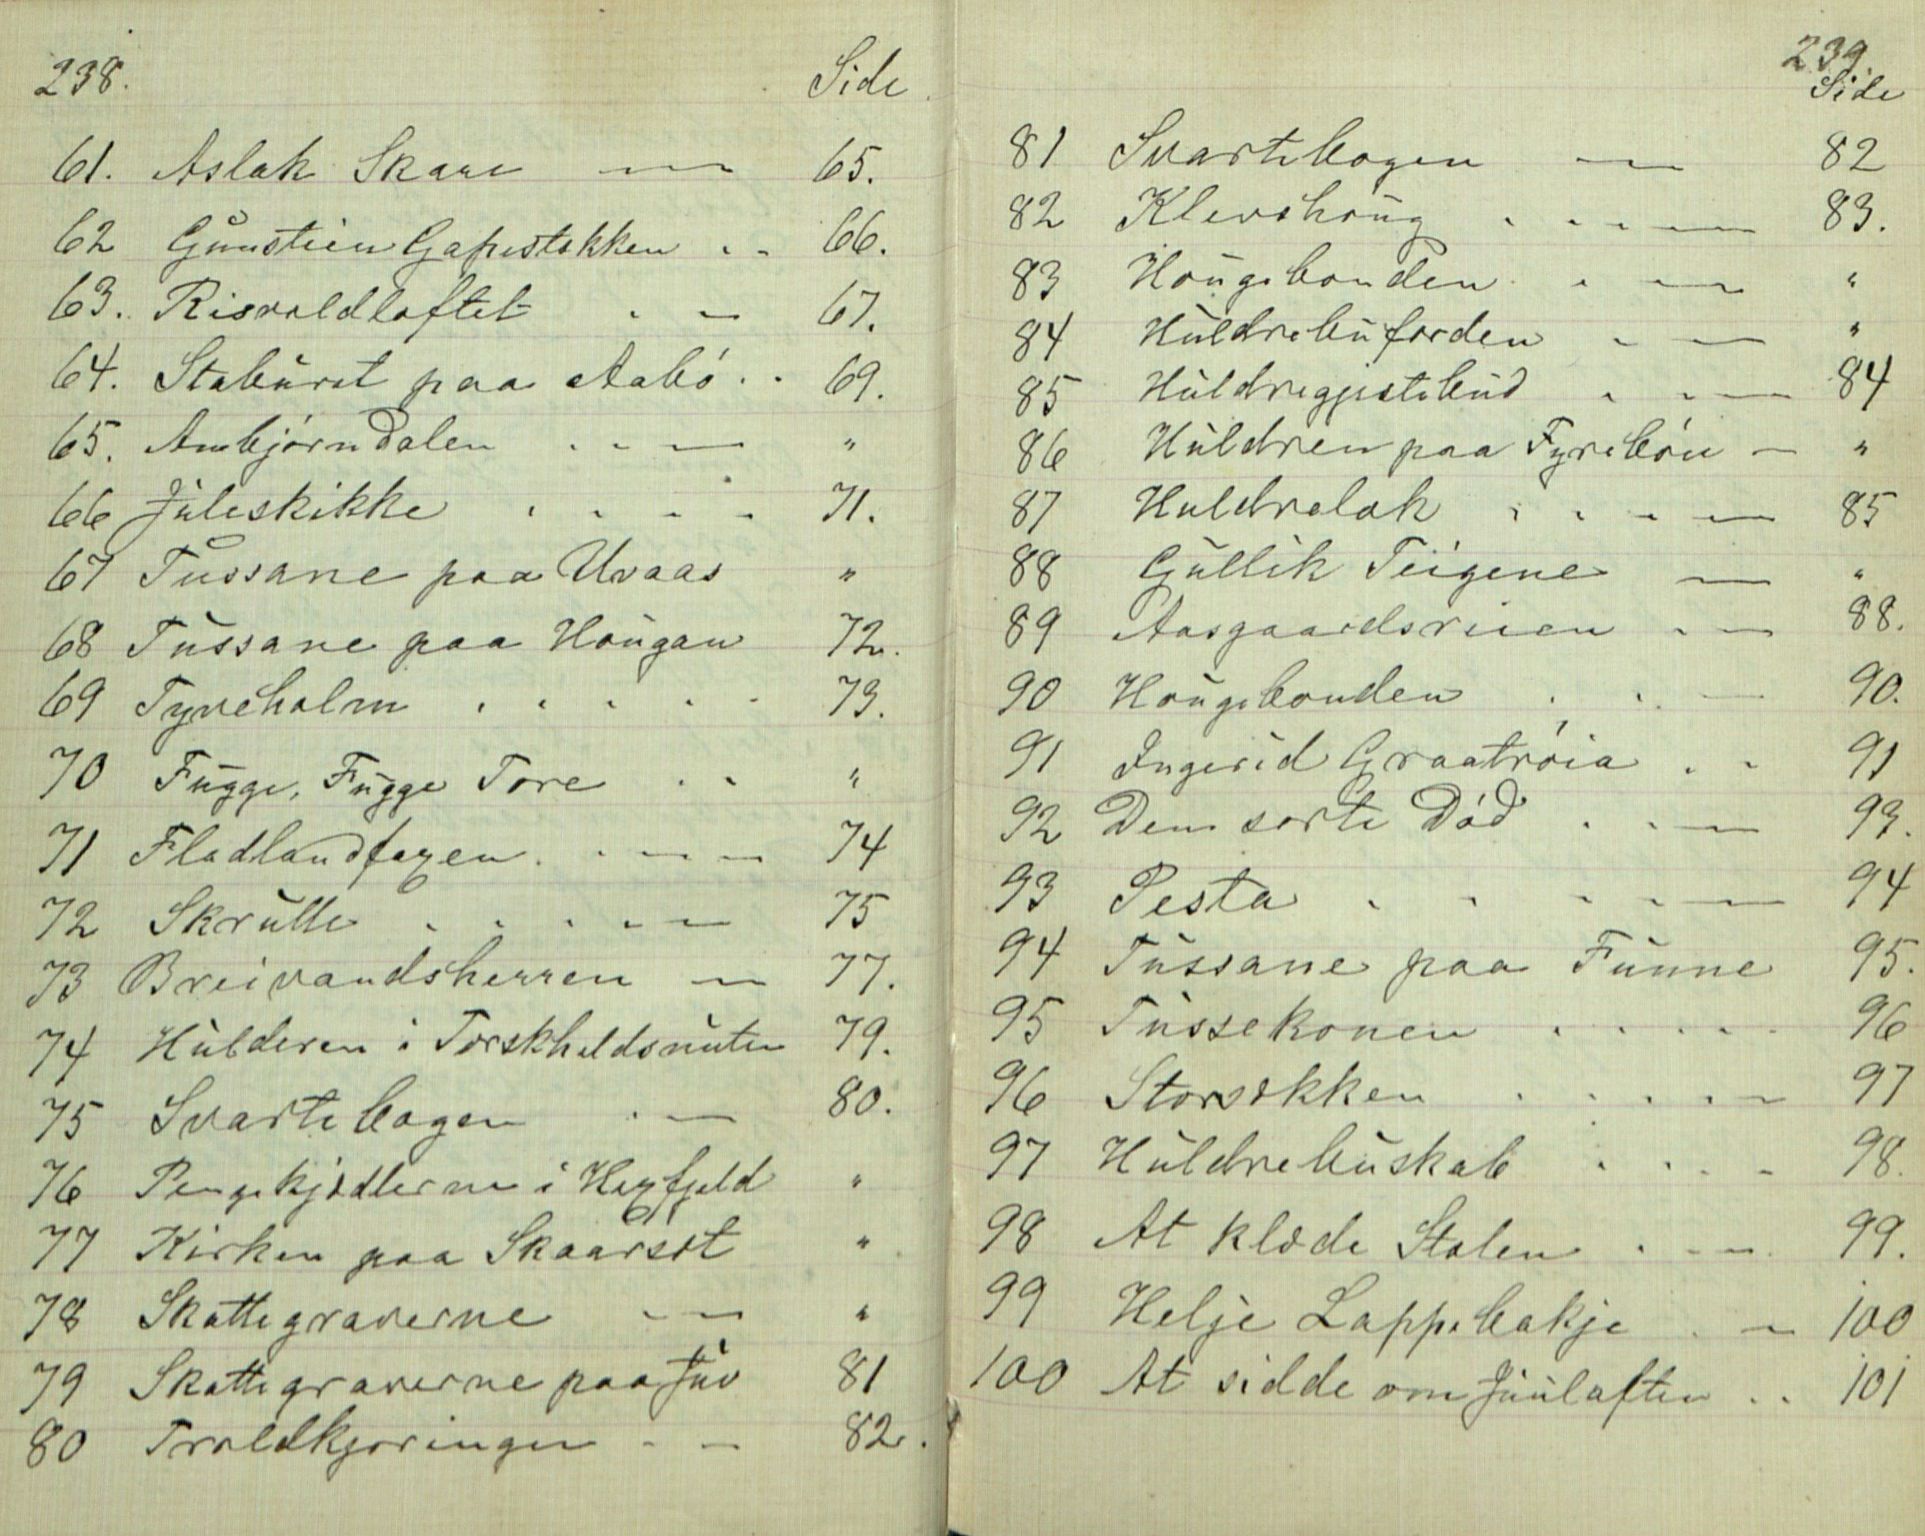 238.
Side
61. Aslak Skare — 65.
62 Gunstien Gapestokken . . 66.
63. Risvoldloftet . - 67.
64. Stabúret paa Aabó . . 69.
65. Ambjørndalen . . — "
66 Juleskikke . . . . 71.
67 Tussane paa Uvaas "
68 Tussane paa Haugan 72.
69 Tyveholm . . . . . 73.
70 Fugge, Fugge Tore . . "
71 Fladlandfagen . . — — 74
72 Skrulle . . . . — 75
73 Breivandsherren — 77.
74 Hulderen i Torskholdsnuten 79.
75 Svartebogen . — 80.
76 Pengekjedlerne i Hægfjeld "
77 Kirken paa Skaarset "
78 Skattegraverne — "
79 Skattegraverne paa Juv 81
80 Troldkjøringen - - 82.
239.
Side
81 Svartebogen — 82
82 Klevshoug . . . — 83.
83 Hougebonden . . — "
84 Huldrebuforden . — "
85 Huldregjestebud . . — 84
86 Huldren paa Fyribøn — "
87 Huldrelok . . . — 85
88 Gullik Teigene — "
89 Aasgaardsreien . — 88.
90 Hougebonden . . — 90.
91 Ingerid Graatróia . . 91
92 Den sorte Dód . . — 93.
93 Pesta . . . . — 94
94 Tussane paa Funne 95.
95 Tussekonen . . . . . 96
96 Storsokken . . . . — 97
97 Huldrebuskab . . . . 98.
98 At klæde Stolen . . — 99.
99 Helje Lappebakje . — 100
100 At sidde om Juulaften . . 101